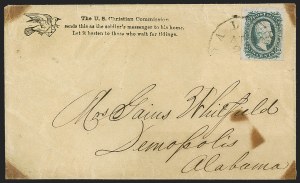 The U. S. Christian Commission
sends this as the soldier's messenger to his home.
Let it hasten to those who wait for tidings.
Mrs Gains Whitfield
Demopolis
Alabama